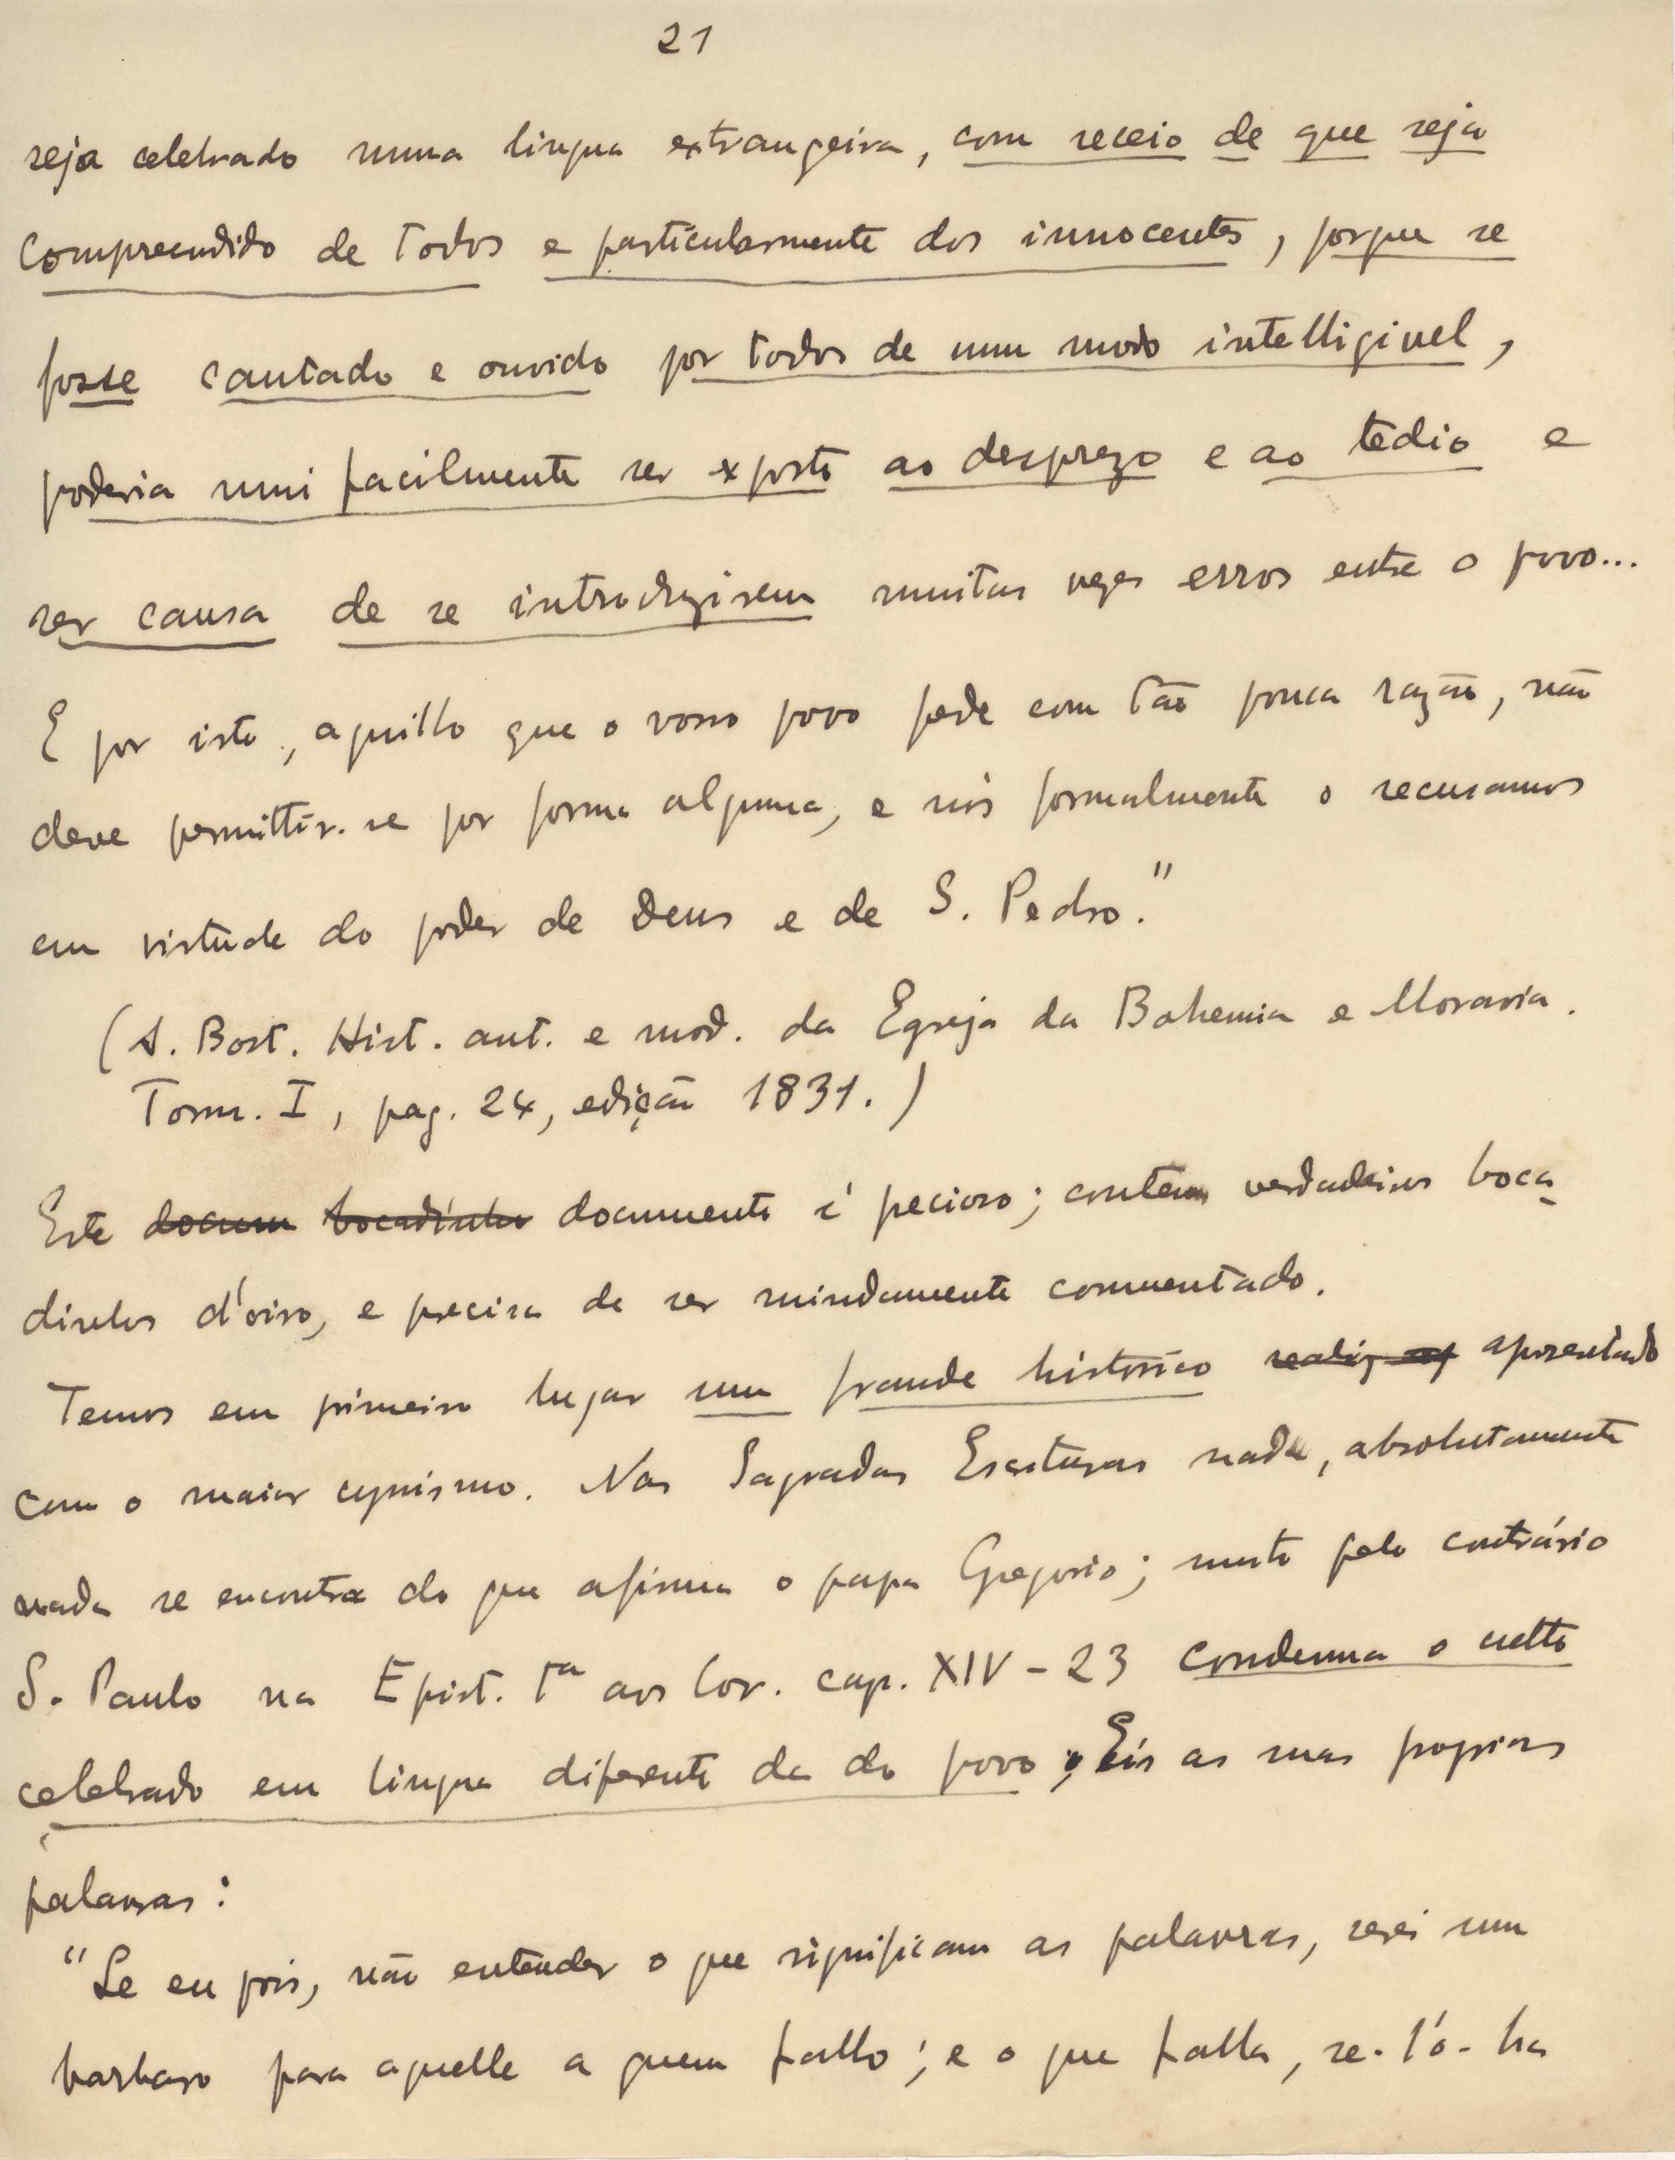 21
seja celebrado numa lingua extrangeira, com receio de que seja
compreendido de todos e particularmente dos innocentes, porque se
fosse cantado e ouvido por todos de um modo intelligivel,
poderia mui facilmente ser exposto ao desprezo e ao tedio e
ser causa de se introduzirem muitas vezes erros entre o povo...
E por isto, aquillo que o vosso povo pede com tão pouca razão, não
deve permittir-se por forma alguma, e nós formalmente o recusamos
em virtude do poder de Deus e de S. Pedro."
(A. Bost. Hist. ant. e mod. da Egreja da Bohemia e Moravia.
Tom. I, pag. 24, edição 1831.)
Este docum bocadinho documento é pecioso; contem verdadeiros boca-
dinhos d'oiro, e precisa de ser miudamente commentado.
Temos em primeiro lugar um fraude historico apresentado
com o maior cynismo. Nas Sagradas Escrituras nada, absolutamente
nada se encontra do que afirma o papa Gregorio; muito pelo contrário
S. Paulo na Epist. 1ª aos Cor. cap. XIV - 23 condemna o culto
celebrado em lingua diferente da do povo; Eis as suas proprias
palavras:
"Se eu pois, não entender o que significam as palavras, serei um
barbaro para aquelle a quem fallo; e o que falla, se-l'ó-ha